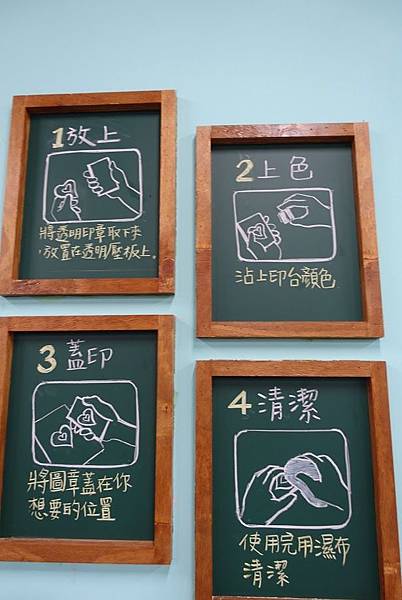 1放上
將透明印章取下來
,放置在透明壓板上。
2上色
沾上印台顏色
3蓋印
將圖章蓋在你
想要的位置
4清潔
使用完用濕布
清潔